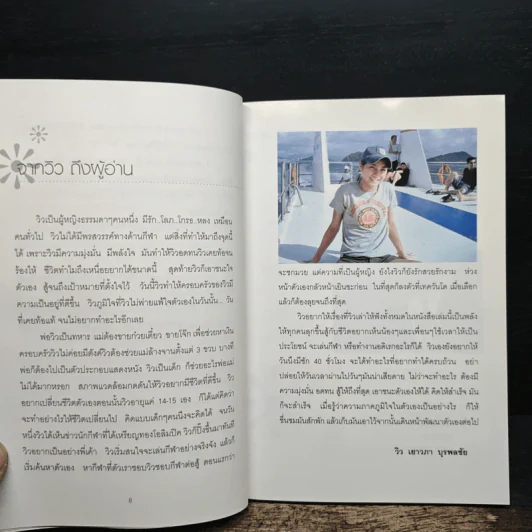 จากวิว ถึงผู้อ่าน
วิวเป็นผู้หญิงธรรมดาๆคนหนึ่ง มีรัก..โลภ..โกรธ..หลง เหมือน
คนทั่วไป วิวไม่ได้มีพรสวรรค์ทางด้านกีฬา แต่สิ่งที่ทำให้มาถึงจุดนี้
ได้ เพราะวิวมีความมุ่งมั่น มีพลังใจ มันทำให้วิวอดทนวิวเคยท้อจน
ร้องไห้ ชีวิตทำไมถึงเหนื่อยยากได้ขนาดนี้ สุดท้ายวิวก็เอาชนะใจ
ตัวเอง สู้จนถึงเป้าหมายที่ตั้งใจไว้ วันนี้วิวทำให้ครอบครัวของวิวมี
ความเป็นอยู่ที่ดีขึ้น วิวภูมิใจที่วิวไม่พ่ายแพ้ใจตัวเองในวันนั้น.. วัน
ที่เคยท้อแท้ จนไม่อยากทำอะไรอีกเลย
พ่อวิวเป็นทหาร แม่ต้องขายก๋วยเตี๋ยว ขายโจ๊ก เพื่อช่วยหาเงิน
ครอบครัววิวไม่ค่อยมีตังค์วิวต้องช่วยแม่ล้างจานตั้งแต่ 3 ขวบ บางที
พ่อก็ต้องไปเป็นตัวประกอบแสดงหนัง วิวเป็นเด็ก ก็ช่วยอะไรพ่อแม่
ไม่ได้มากหรอก สภาพแวดล้อมกดดันให้วิวอยากมีชีวิตที่ดีขึ้น วิว
อยากเปลี่ยนชีวิตตัวเองตอนนั้นวิวอายุแค่ 14-15 เอง ก็ได้แต่คิดว่า
จะทำอย่างไรให้ชีวิตเปลี่ยนไป คิดแบบเด็กๆคนนึงจะคิดได้ จนวัน
หนึ่งวิวได้เห็นข่าวนักกีฬาที่ได้เหรียญทองโอลิมปิค วิวก็ปิ๊งขึ้นมาทันที
วิวอยากเป็นอย่างพี่เค้า วิวเริ่มสนใจจะเล่นกีฬาอย่างจริงจัง แล้วก็
เริ่มค้นหาตัวเอง หากีฬาที่ตัวเราชอบวิวชอบกีฬาต่อสู้ ตอนแรกว่า
8
จะชกมวย แต่ความที่เป็นผู้หญิง ยังไงวิวก็ยังรักสวยรักงาม ห่วง
หน้าตัวเองกลัวหน้าเป็นซะก่อน ในที่สุดก็ลงตัวที่เทควันโด เมื่อเลือก
แล้วก็ต้องลุยจนถึงที่สุด
วิวอยากให้เรื่องที่วิวเล่าให้ฟังทั้งหมดในหนังสือเล่มนี้เป็นพลัง
ให้ทุกคนลุกขึ้นสู้กับชีวิตอยากเห็นน้องๆและเพื่อนๆใช้เวลาให้เป็น
ประโยชน์ จะเล่นกีฬา หรือทำงานอดิเรกอะไรก็ได้ วิวเองยังอยากให้
วันนึงมีซัก 40 ชั่วโมง จะได้ทำอะไรที่อยากทำได้ครบถ้วน อย่า
ปล่อยให้วันเวลาผ่านไปวันๆมันน่าเสียดาย ไม่ว่าจะทำอะไร ต้องมี
ความมุ่งมั่น อดทน สู้ให้ถึงที่สุด เอาชนะตัวเองให้ได้ คิดให้สำเร็จ มัน
ก็จะสำเร็จ เมื่อรู้ว่าความภาคภูมิใจในตัวเองเป็นอย่างไร ก็ให้
ชื่นชมมันสักพัก แล้วเก็บมันเอาไว้จากนั้นเดินหน้าพัฒนาตัวเองต่อไป
วิว เยาวภา บุรพลชัย